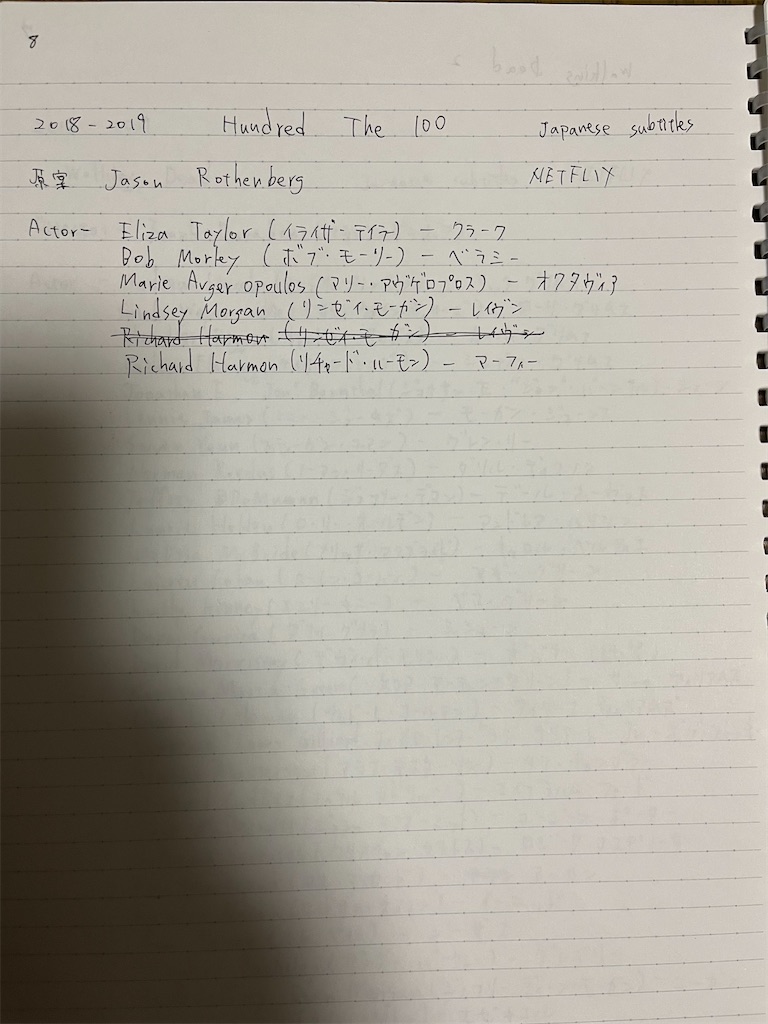 8
2018-2019 Hundred The 100 Japanese subtitles
原案 Jason Rothenberg NETFLIX
Actor- Eliza Taylor (イライザ・テイラー) - クラーク
Bob Morley (ボブ・モーリー) - ベラミー
Marie Avgeropoulos (マリー・アヴゲロプロス) - オクタヴィア
Lindsey Morgan (リンゼイ・モーガン) - レイヴン
Richard Harmon (リンゼイ・モーガン) - レイヴン
Richard Harmon (リチャード・ハーモン) - マーフィー